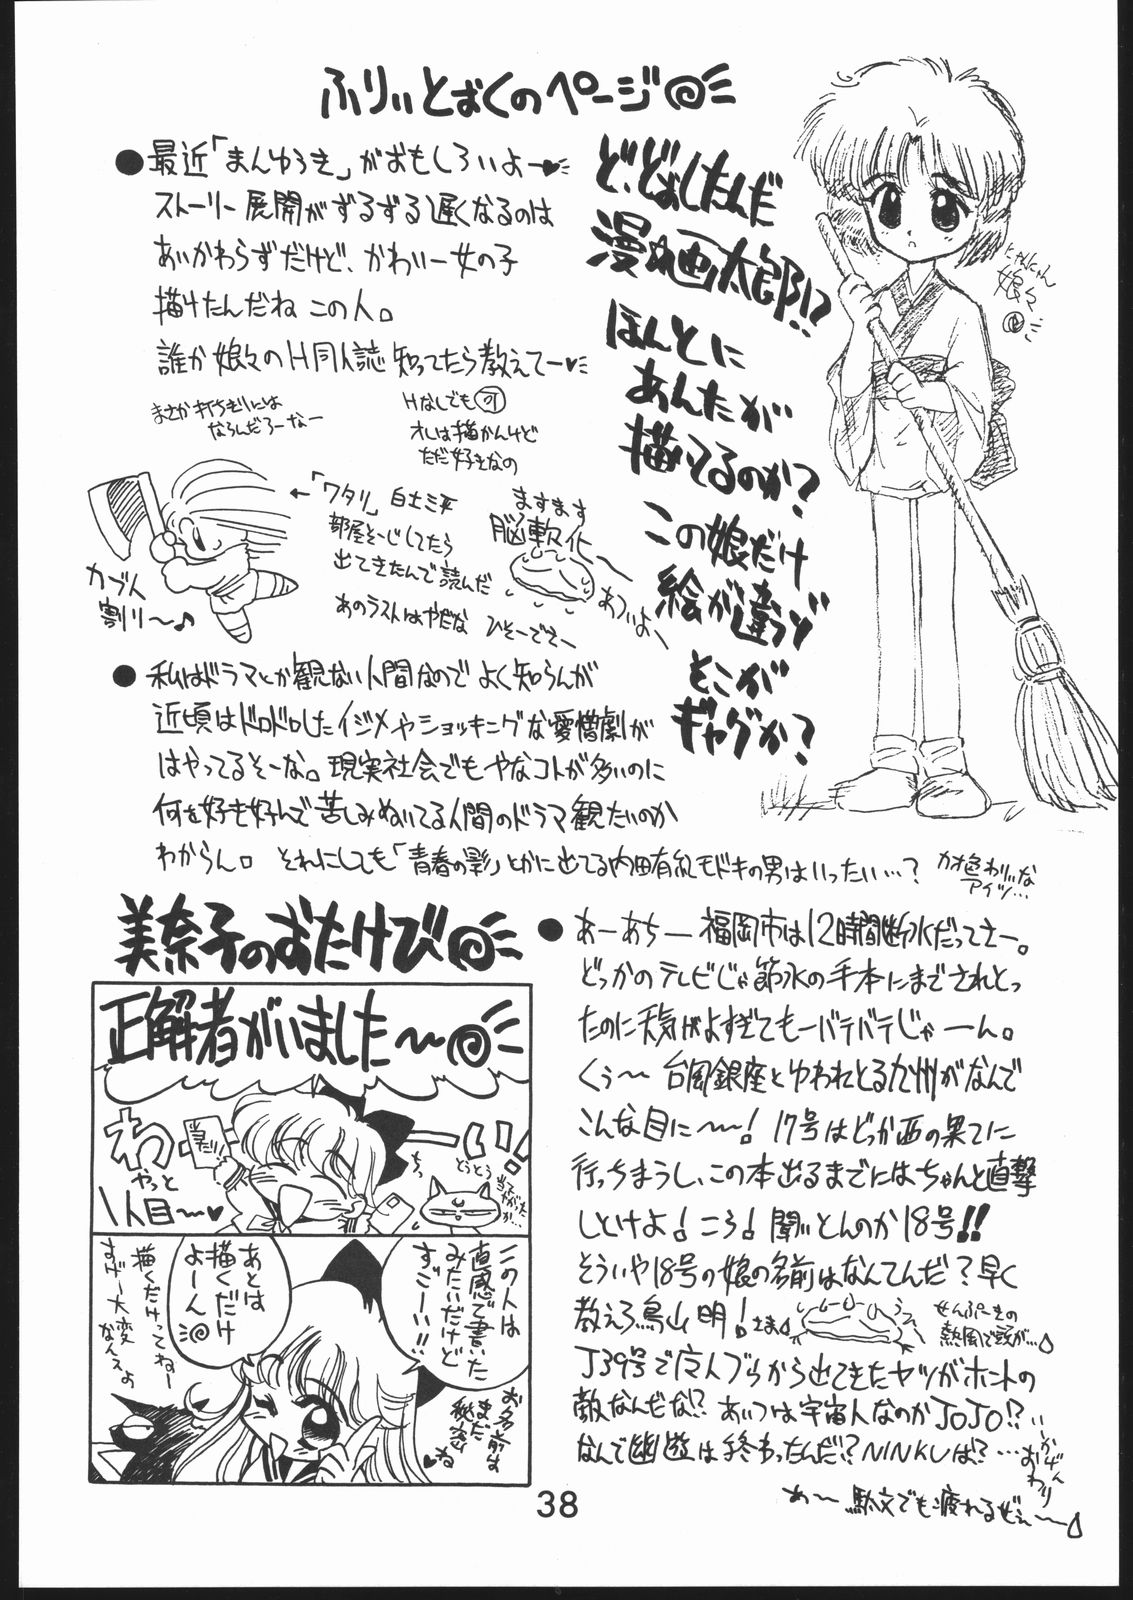 ふりぃとばくのページ
●最近「まんゆうき」がおもしろいよー♥
ストーリー展開がずるずる遅くなるのは
あいかわらずだけど、かわいー女の子
描けたんだね この人。
誰か娘々のH同人誌知ってたら教えてー♥
まさか打ちぎりには
ならんだろーなー
Hなしでも可
オレは描かんけど
ただ好きなの
ど、どおしたんだ
漫☆画太郎!?
ほんとに
あんたが
描いてるのか?
この娘だけ
絵が違うぞ
そこが
ギャグか?
にゃんにゃん
娘々
←「ワタリ」白土三平
部屋そーじしてたら
出てきたんで読んだ
あのラストはやだな ひそーでさー
カブト
割り〜♪
ますます
脳軟化
あついよー
●私はドラマとか観ない人間なのでよく知らんが
近頃はドロドロしたイジメやショッキングな愛憎劇が
はやってるそーな。現実社会でもやなコトが多いのに
何を好き好んで苦しみぬいてる人間のドラマ観たいのか
わからん。それにしても「青春の影」とかに出てる内田有紀モドキの男はいったい…?
カオ色わりぃな
アイツ…
美奈子のおたけび
正解者がいました〜
わーい!
やっと
1人目〜♥
とうとう
この人は
直感で書いた
みたいだけど
すごーい!!
お名前は
まだ
秘密
ね♥
あとは
描くだけ
よーん
描くだけってねー
すげー大変
なんスよ
●あーあちー 福岡市は12時間断水だってさー。
どっかのテレビじゃ節水の手本にまでされとっ
たのに天気がよすぎてもーバテバテじゃーん。
くぅ〜 台風銀座とゆわれとる九州がなんで
こんな目に〜〜! 17号はどっか西の果てに
行っちまうし、この本出るまでにはちゃんと直撃
しといけよ! ころ! 聞いとんのか18号!!
そういや18号の娘の名前はなんてんだ?早く
教えろ鳥山明!さま
せんぷーきの
熱風で頭が…
J39号で广人ブウから出てきたヤツがホントの
敵なんだな!? あいつは宇宙人なのかJOJO!?
なんで幽遊は終わったんだ!? NINKUは?…
いかげん
おわり
あ〜 駄文でも疲れるぜぇ〜
38